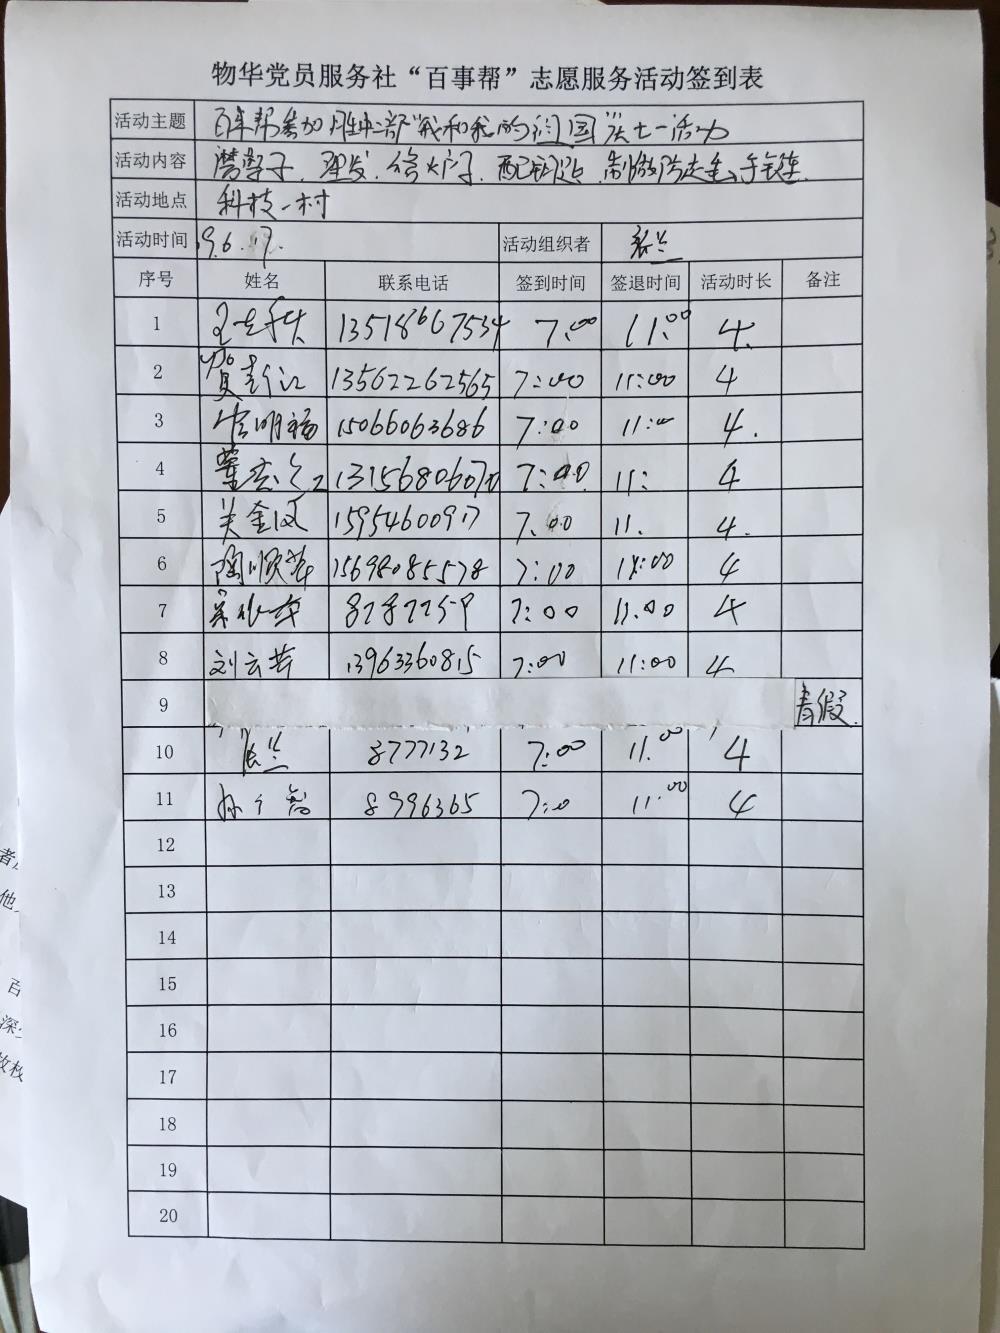 物华党员服务社“百事帮”志愿服务活动签到表
活动主题 百事帮参加胜中二部“我和我的祖国”庆七一活动
活动内容 磨剪子、理发、修大门、配钥匙、
活动地点 科技一村
活动时间 19.6.17. 活动组织者 兰
序号 姓名 联系电话 签到时间 签退时间 活动时长 备注
1 13518667534 7:00 11:00 4.
2 贾新江 13562262565 7:00 11:00 4
3 明福 15066063686 7:00 11:00 4.
4 董 13156806070 7:00. 11: 4
5 关金凤 15954600917 7:00 11. 4.
6 陶顺华 15698085578 7:00 11:00 4
7 8787259 7:00 11:00 4
8 刘云英 13963360815 7:00 11:00 4
9 请假.
10 兰 8777132 7:00 11:00 4
11 孙 8996365 7:0 11:00 4
12
13
14
15
16
17
18
19
20
者
他
百
深